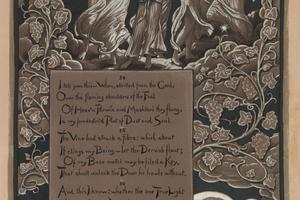 I tell you this—When, started from the Goal,
Over the flaming shoulders of the Foal
Of Heav'n Parwin and Mushtari they flung,
In my predestin'd Plot of Dust and Soul
The Vine had struck a fibre: which about
If clings my Being—let the Dervish flout;
Of my Base metal may be filed a Key,
That shall unlock the Door he howls without.
And this I know: whether the one True Light